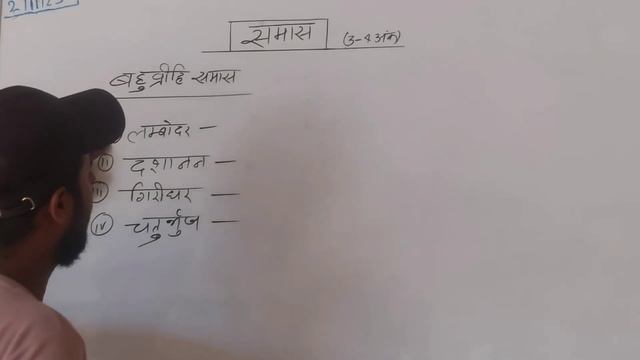 समास (3-4 अंक)
बहुव्रीहि समास
लम्बोदर —
(ii) दशानन —
(iii) गिरीधर —
(iv) चतुर्भुज —